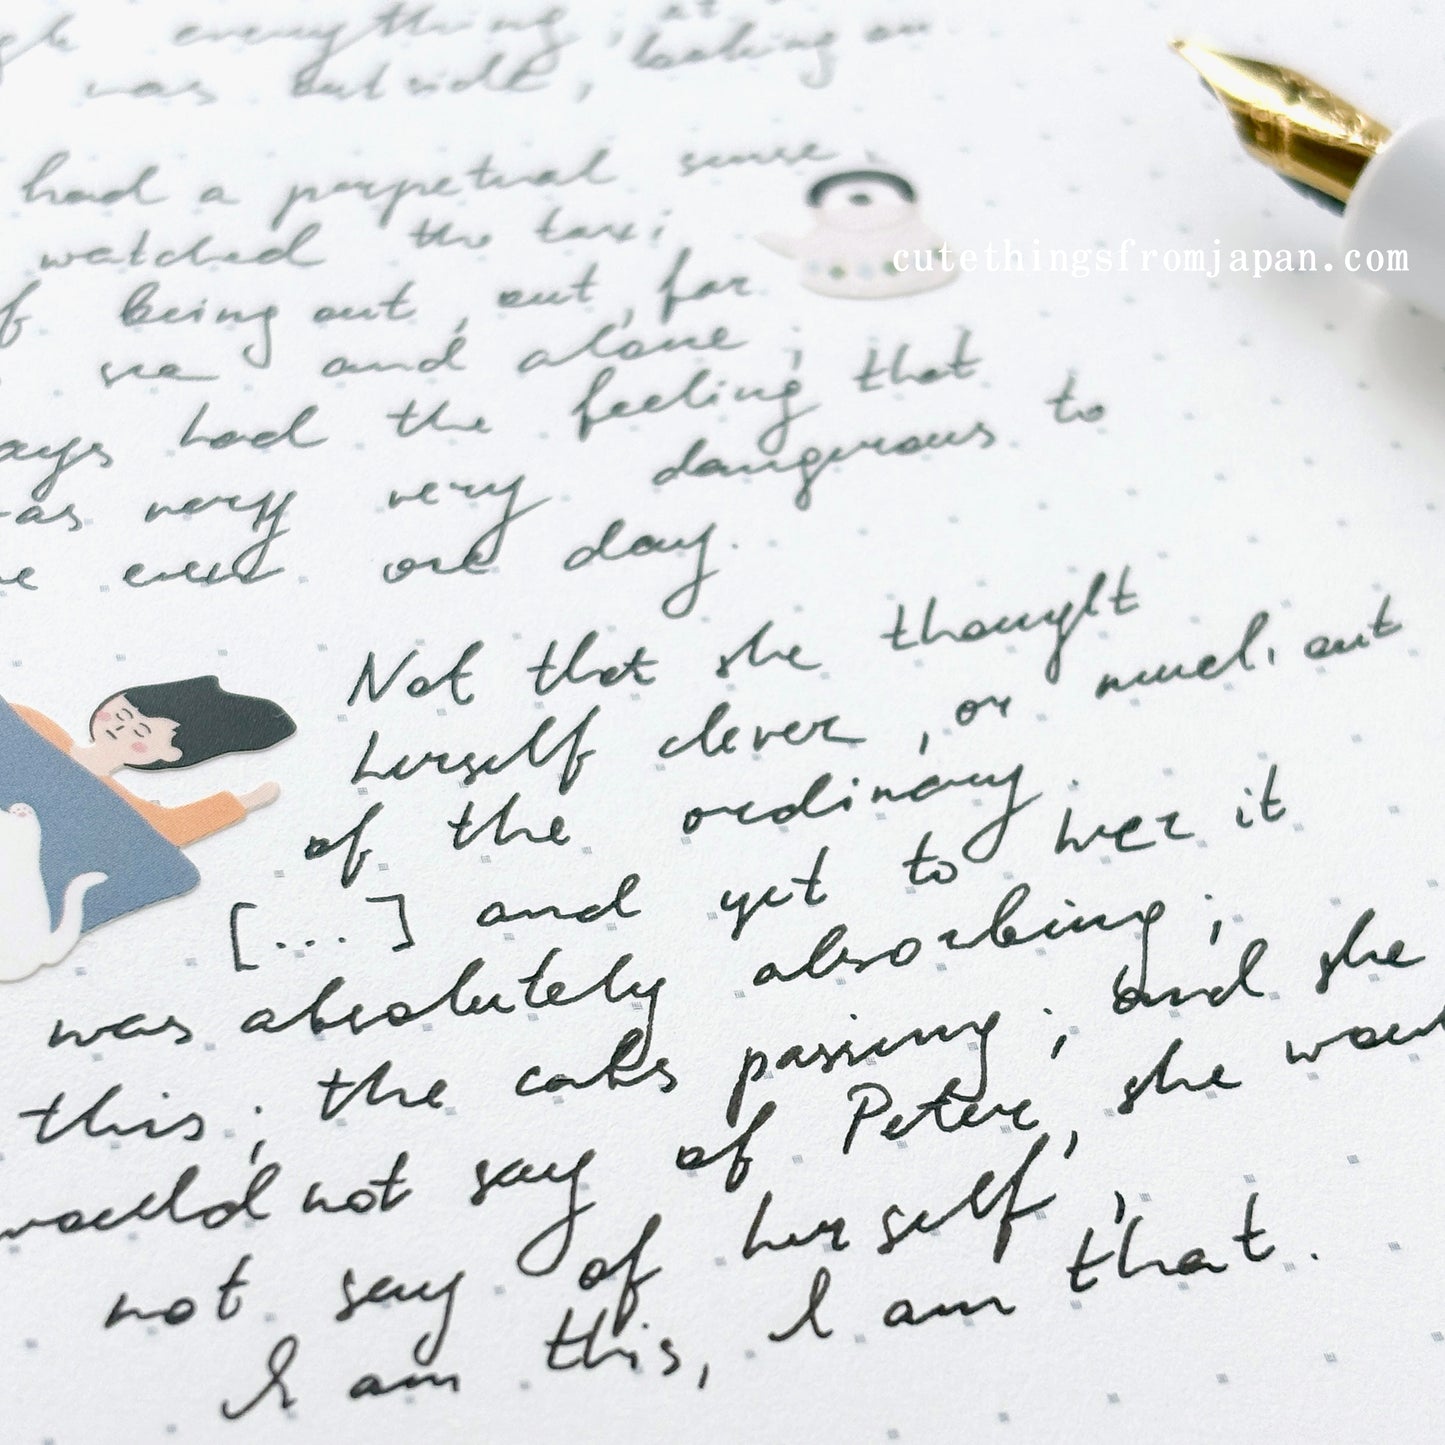 everything, at
was outside, looking on
had a perpetual sense,
watched the taxi
f being out, out, far
sea and alone;
ays had the feeling that
as very very dangerous to
e even one day.
Not that she thought
herself clever, or much out
of the ordinary.
[...] and yet to her it
was absolutely absorbing;
this; the cabs passing; and she
would not say of Peter, she wou
not say of herself,
I am this, I am that.
cutethingsfromjapan.com